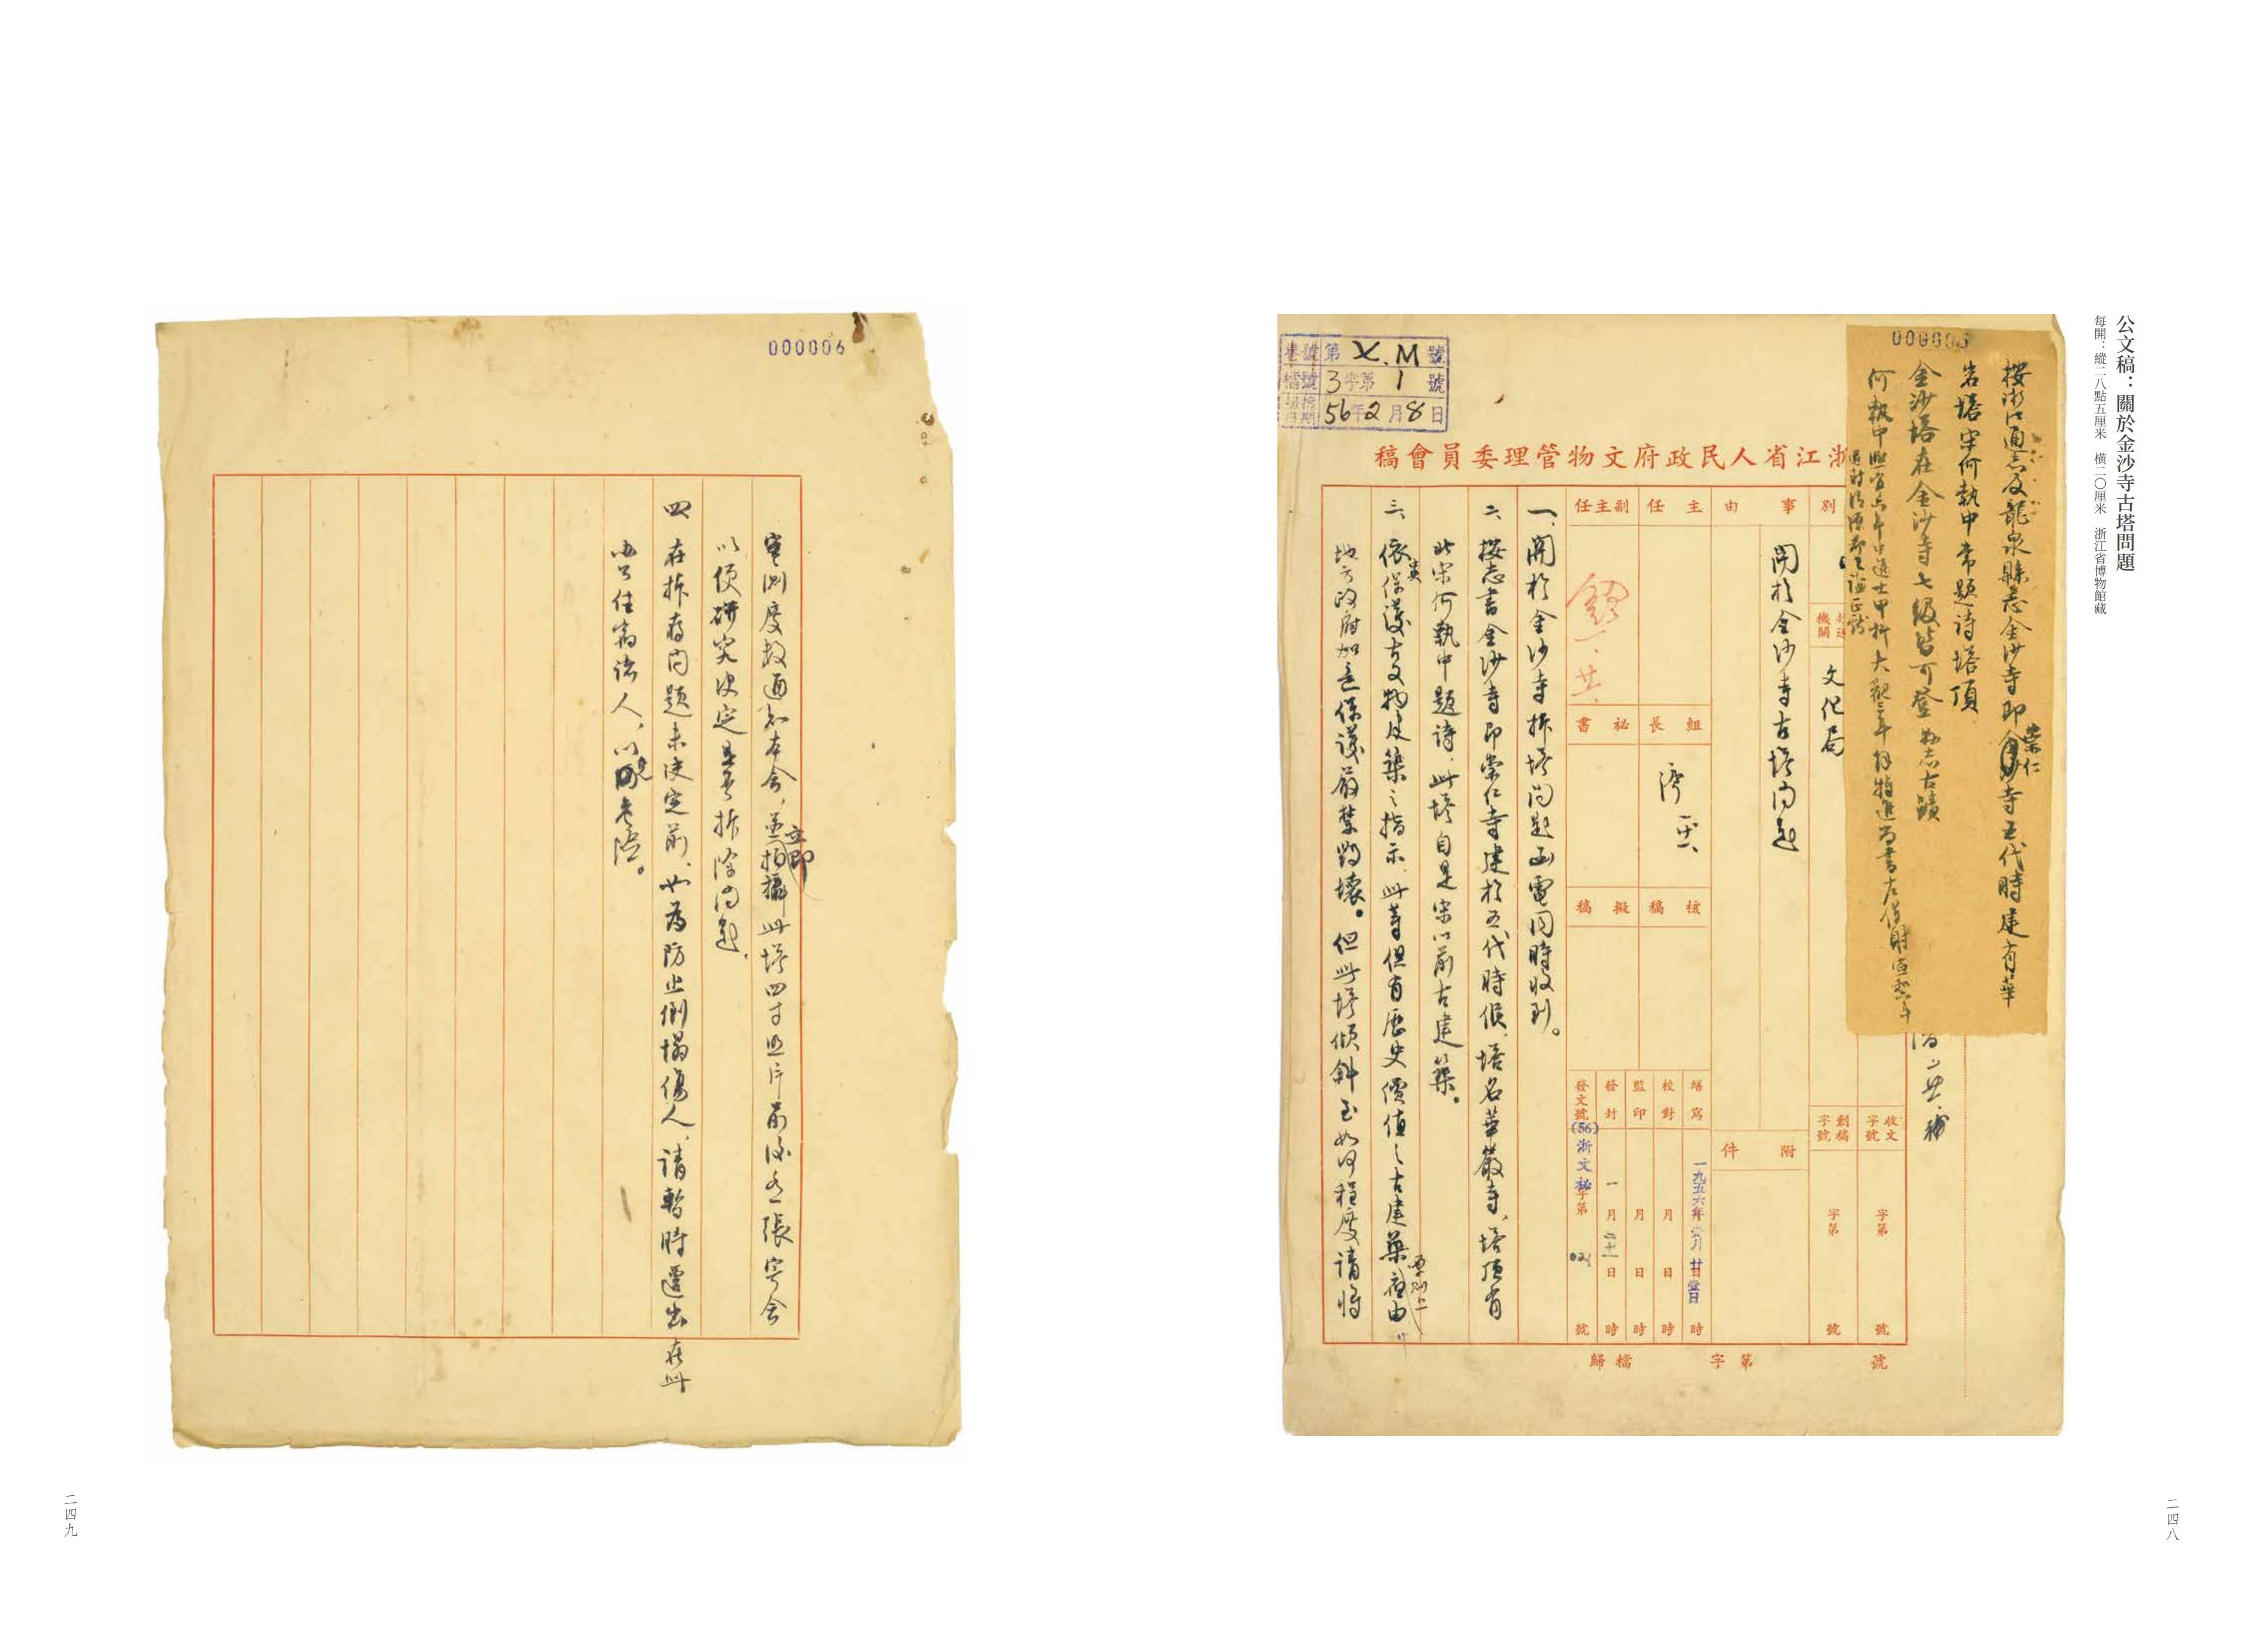 公文稿：關於金沙寺古塔問題
每開：縱二八點五厘米　橫二〇厘米　浙江省博物館藏
000005
按浙江通志及龍泉縣志金沙寺即崇仁寺五代時建有華
岩塔宋何執中常題詩塔頂
金沙塔在金沙寺七級皆可登 縣志古蹟
何執中熙寧六年中進士甲科大觀三年拜特進尚書左僕射
卷號 第 X.M 號
檔號 3字第 1 號
56年2月8日
浙江省人民政府文物管理委員會稿
別
機關
文化局
收文字號
字第
號
創稿字號
字第
號
事由
關於金沙寺古塔問題
附件
主任
副主任
組長
秘書
核稿
擬稿
繕寫
一九五六年
時
校對
月
日
時
監印
月
日
時
發封
一月二十一日
時
發文號
(56)浙文秘字第
021
號
一、關於金沙寺拆塔問題函電同時收到。
二、按志書金沙寺即崇仁寺建於五代時候，塔名華嚴寺，塔頂有
此宋何執中題詩，此塔自是宋以前古建築。
三、依據保護古文物及建築之指示，此等但有歷史價值之古建築原則上應由
地方政府加意保護嚴禁毀壞。但此塔傾斜至如何程度請將
歸檔
字第
號
000006
實測度數通知本會，並立即拍攝此塔四寸照片前後各一張寄會
以便研究決定是否拆除問題。
四、在拆存問題未決定前，如為防止倒塌傷人，請暫時遷出在此
辦公住宿諸人，以免危險。
二四八
二四九